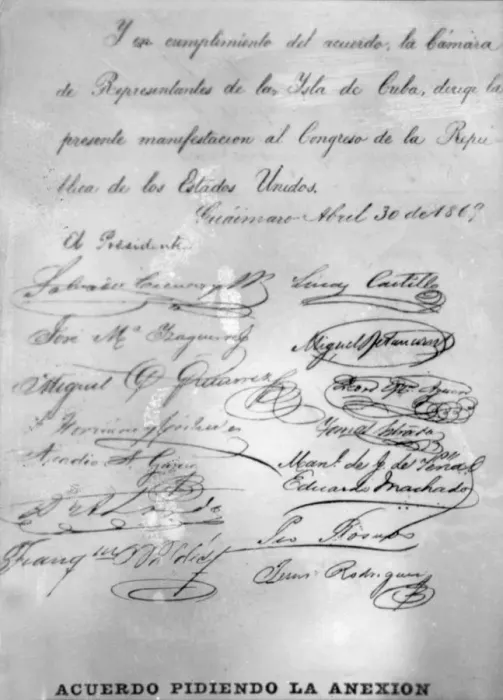 Y en cumplimiento del acuerdo, la Cámara
de Representantes de la Isla de Cuba, dirige la
presente manifestacion al Congreso de la Repu-
blica de los Estados Unidos.
Guáimaro Abril 30 de 1869
El Presidente
Salvador Cisneros y B.
Lucas Castillo
José Mª Izaguirre
Miguel Betancourt
Miguel G. Gutierrez
Tomas Estrada
Arcadio S. Garcia
Manl. de J. de Peña
Eduardo Machado
Pio Rosado
Jesus Rodriguez
ACUERDO PIDIENDO LA ANEXION